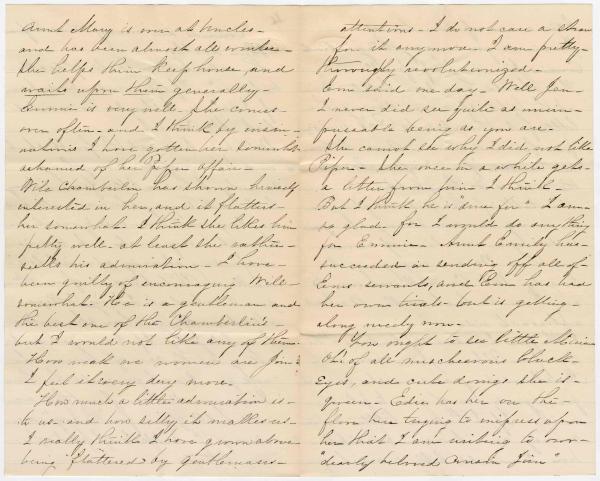 Aunt Mary is over at Uncles -
and has been almost all winter -
She helps them keep house, and
waits upon them generally -
Emmie is very well - She comes
over often - and I think by
I have gotten her somewhat
ashamed of her Piper affair -
Will Chamberlin has shown himself
interested in her, and it flatters
her somewhat - I think she likes him
pretty well - at least she rather
his admiration - I have
been guilty of encouraging Will -
somewhat - He is a gentleman and
the best one of the Chamberlin's -
but I would not like any of them -
How weak we women are Jim -
I feel it every day more -
How much a little admiration is
to us - and how silly it makes us -
I really think I have grown above
being "flattered by gentlemans -
attentions - I do not care a straw
for it anymore - I am pretty
thoroughly revolutionized -
Em said one day - Well Jen -
I never did see quite as
being as you are -
She cannot see why I did not like
Piper - She once in a while gets
a letter from him - I think -
But I think he is "done for" - I am
so glad - for I would do anything
for Emmie - Aunt Emily has
succeeded in sending off all of
Ems servants, and Em has had
her own trials - but is getting
along nicely now -
You ought to see little
Of all mischievous black
Eyes, and cute doings she is
- Edie has her on the
floor here trying to impress upon
her that I am writing to our
"dearly beloved Cousin Jim"